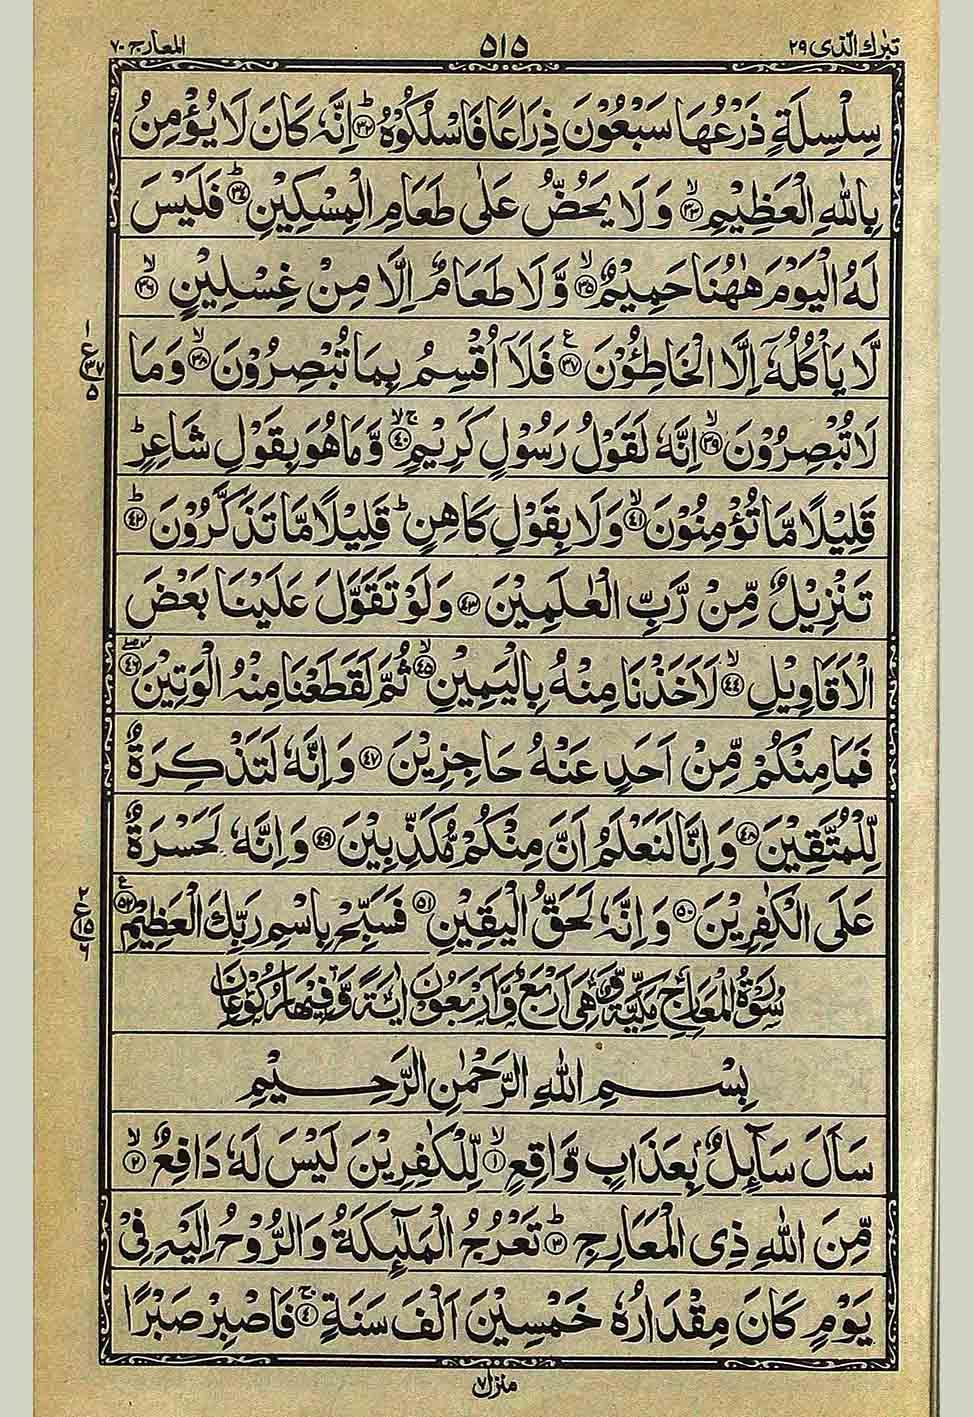 تبٰرك الّذی ۲۹ ۵۱۵ المعارج ۷۰
سِلْسِلَةٍ ذَرْعُهَا سَبْعُوْنَ ذِرَاعًا فَاسْلُكُوْهُ ؕ﴿۳۲﴾ اِنَّهٗ كَانَ لَا يُؤْمِنُ
بِاللّٰهِ الْعَظِيْمِ ۙ﴿۳۳﴾ وَلَا يَحُضُّ عَلٰى طَعَامِ الْمِسْكِيْنِ ؕ﴿۳۴﴾ فَلَيْسَ
لَهُ الْيَوْمَ هٰهُنَا حَمِيْمٌ ۙ﴿۳۵﴾ وَّلَا طَعَامٌ اِلَّا مِنْ غِسْلِيْنٍ ۙ﴿۳۶﴾
لَّا يَاْكُلُهٗۤ اِلَّا الْخَاطِـُٔوْنَ ﴿۳۷﴾ ع فَلَاۤ اُقْسِمُ بِمَا تُبْصِرُوْنَ ۙ﴿۳۸﴾ وَمَا
لَا تُبْصِرُوْنَ ۙ﴿۳۹﴾ اِنَّهٗ لَقَوْلُ رَسُوْلٍ كَرِيْمٍ ۚۙ﴿۴۰﴾ وَّمَا هُوَ بِقَوْلِ شَاعِرٍ ؕ
قَلِيْلًا مَّا تُؤْمِنُوْنَ ۙ﴿۴۱﴾ وَلَا بِقَوْلِ كَاهِنٍ ؕ قَلِيْلًا مَّا تَذَكَّرُوْنَ ؕ﴿۴۲﴾
تَنْزِيْلٌ مِّنْ رَّبِّ الْعٰلَمِيْنَ ﴿۴۳﴾ وَلَوْ تَقَوَّلَ عَلَيْنَا بَعْضَ
الْاَقَاوِيْلِ ۙ﴿۴۴﴾ لَاَخَذْنَا مِنْهُ بِالْيَمِيْنِ ۙ﴿۴۵﴾ ثُمَّ لَقَطَعْنَا مِنْهُ الْوَتِيْنَ ﴿۴۶﴾
فَمَا مِنْكُمْ مِّنْ اَحَدٍ عَنْهُ حَاجِزِيْنَ ﴿۴۷﴾ وَاِنَّهٗ لَتَذْكِرَةٌ
لِّلْمُتَّقِيْنَ ﴿۴۸﴾ وَاِنَّا لَنَعْلَمُ اَنَّ مِنْكُمْ مُّكَذِّبِيْنَ ﴿۴۹﴾ وَاِنَّهٗ لَحَسْرَةٌ
عَلَى الْكٰفِرِيْنَ ﴿۵۰﴾ وَاِنَّهٗ لَحَقُّ الْيَقِيْنِ ﴿۵۱﴾ فَسَبِّحْ بِاسْمِ رَبِّكَ الْعَظِيْمِ ﴿۵۲﴾ ع
سُوْرَةُ الْمَعَارِجِ مَكِّيَّةٌ وَّهِيَ اَرْبَعٌ وَّاَرْبَعُوْنَ اٰيَةً وَّفِيْهَا رُكُوْعَانِ
بِسْمِ اللّٰهِ الرَّحْمٰنِ الرَّحِيْمِ
سَاَلَ سَآئِلٌۢ بِعَذَابٍ وَّاقِعٍ ۙ﴿۱﴾ لِّلْكٰفِرِيْنَ لَيْسَ لَهٗ دَافِعٌ ۙ﴿۲﴾
مِّنَ اللّٰهِ ذِى الْمَعَارِجِ ؕ﴿۳﴾ تَعْرُجُ الْمَلٰٓئِكَةُ وَالرُّوْحُ اِلَيْهِ فِىْ
يَوْمٍ كَانَ مِقْدَارُهٗ خَمْسِيْنَ اَلْفَ سَنَةٍ ۚ﴿۴﴾ فَاصْبِرْ صَبْرًا
منزل ۷